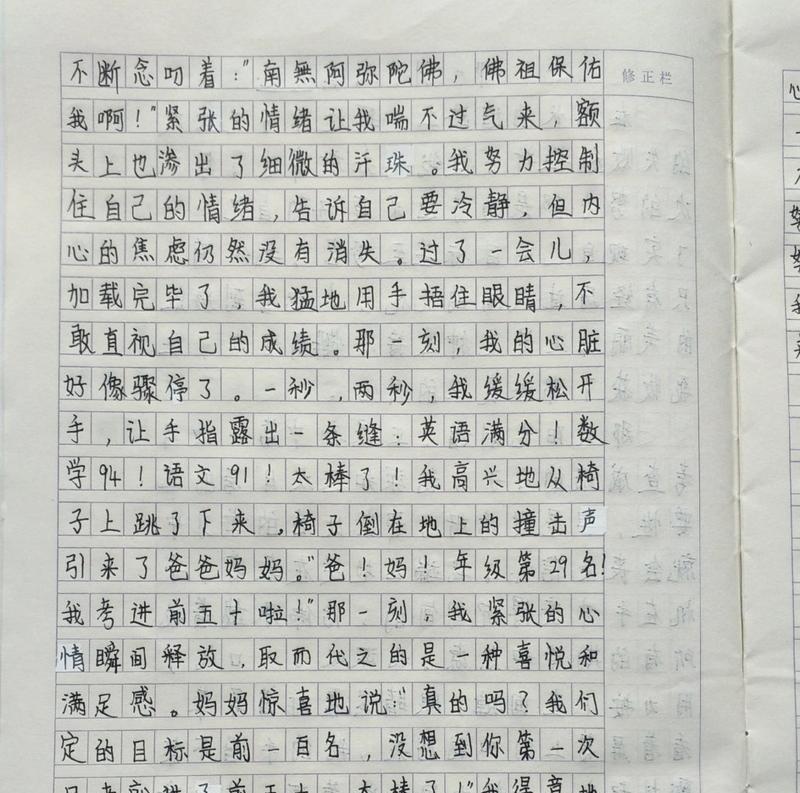 不断念叨着："南無阿弥陀佛，佛祖保佑
修正栏
我啊！"紧张的情绪让我喘不过气来，额
头上也渗出了细微的汗珠。我努力控制
住自己的情绪，告诉自己要冷静，但内
心的焦虑仍然没有消失。过了一会儿，
加载完毕了，我猛地用手捂住眼睛，不
敢直视自己的成绩。那一刻，我的心脏
好像骤停了。一秒，两秒，我缓缓松开
手，让手指露出一条缝：英语满分！数
学94！语文91！太棒了！我高兴地从椅
子上跳了下来，椅子倒在地上的撞击声
引来了爸爸妈妈。"爸！妈！年级第29名！
我考进前五十啦！"那一刻，我紧张的心
情瞬间释放，取而代之的是一种喜悦和
满足感。妈妈惊喜地说："真的吗？我们
定的目标是前一百名，没想到你第一次